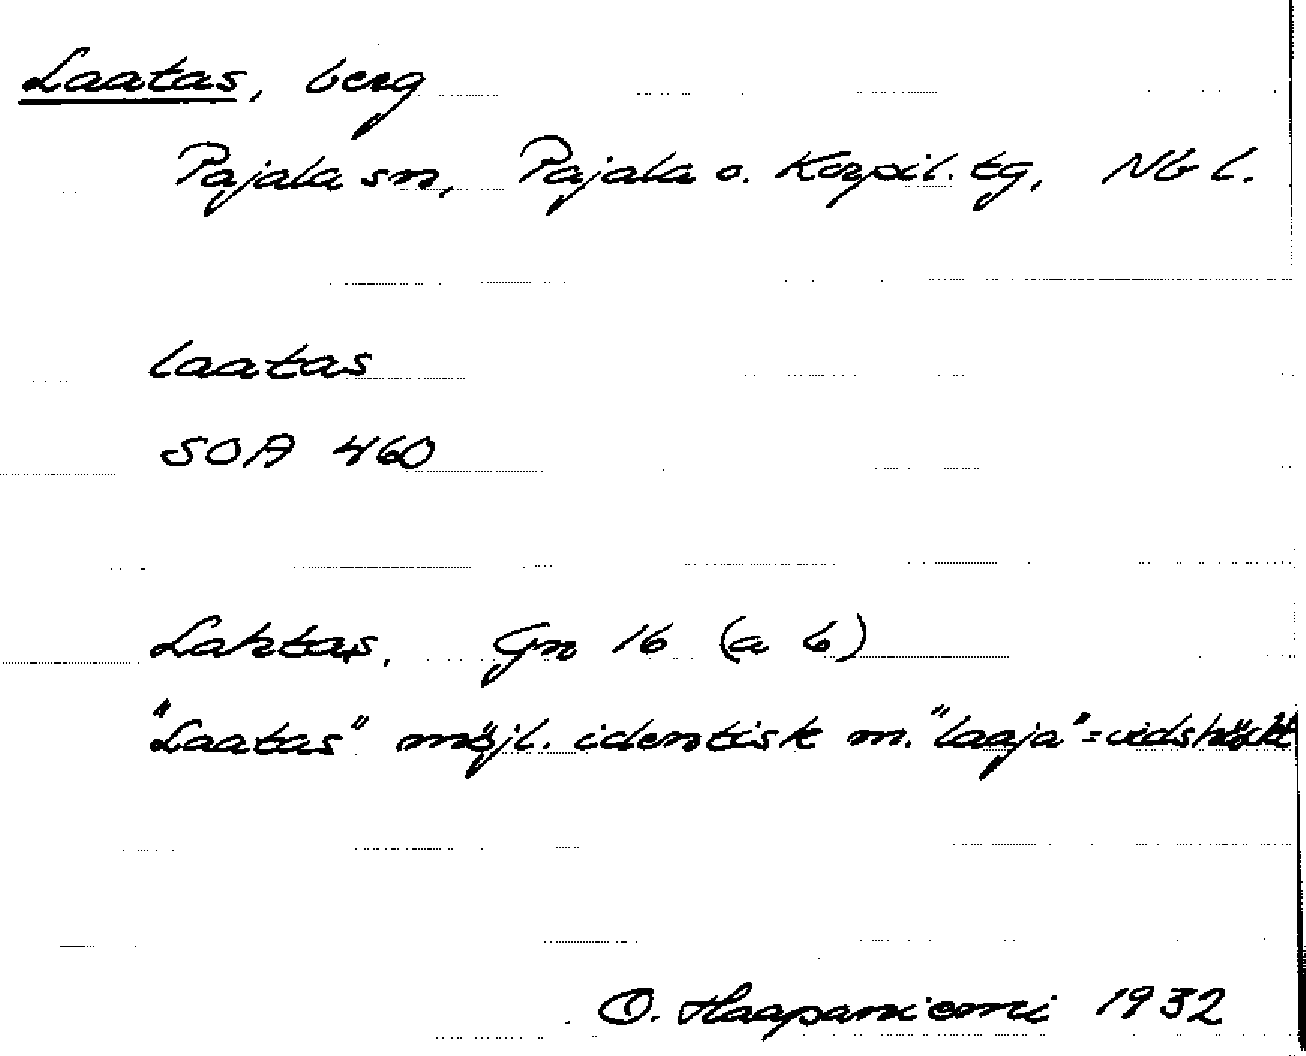 Laatas, berg
Pajala sn, Pajala o. Korpil. tg, Nb l.
laatas
SOA 460
Lahtas, Gn 16 (a b)
"Laatas" möjl. identisk m. "laaja" = vidsträckt
O. Haapaniemi 1932